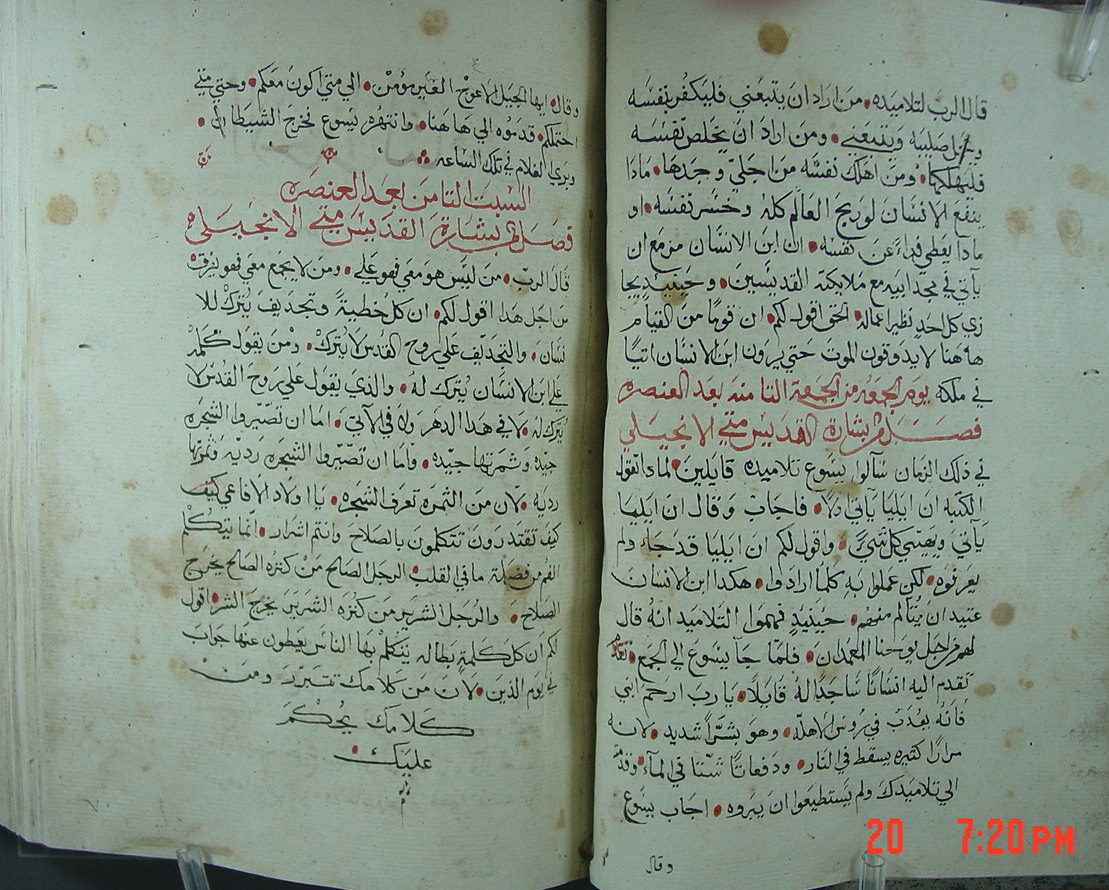 قال الرب لتلاميذه. من اراد ان يتبعني فليكفر بنفسه
ويحمل صليبه ويتبعني. ومن اراد ان يخلص نفسه
فليهلكها. ومن اهلك نفسه من اجلي وجدها. ماذا
ينفع الانسان لو ربح العالم كله وخسر نفسه. او
ماذا يعطي فداء عن نفسه. ان ابن الانسان مزمع ان
يأتي في مجد ابيه مع ملايكته القديسين. وحينيذٍ يجا
زي كل احدٍ نظير اعماله. الحق اقول لكم. ان قومًا من القيام
هاهنا لا يدوقون الموت حتي يرون ابن الانسان اتيًا
في ملكه يوم الجمعه من الجمعة الثامنة بعد العنصره
فصل من بشارة القديس متي الانجيلي
في ذلك الزمان سألوا يسوع تلاميذه قايلين. لماذا تقول
الكتبه ان ايليا يأتي اولاً. فاجاب وقال ان ايليا
يأتي ويهيي كل شيءٍ. واقول لكم ان ايليا قد جاء ولم
يعرفوه. لكن عملوا به كلما ارادوا. هكذا ابن الانسان
عتيد ان يتألم منهم. حينيذٍ فهموا التلاميد انه قال
لهم من اجل يوحنا المعمدان. فلما جا يسوع الي الجمع.
تقدم اليه انسانًا ساجدًا له قايلاً. يا رب ارحم ابني
فانه يعذب في روس الاهله. وهو بشرًا شديد. لانه
مرارًا كثيره يسقط في النار. ودفعاتًا شتنا في الماء. وقدمته
الي تلاميدك ولم يستطيعوا ان يبروه. اجاب يسوع
وقال
وقال. ايها الجيل الاعوج الغير مؤمن. الي متي اكون معكم. وحتي متي
احتملكم. قدموه الي هاهنا. وانتهره يسوع فخرج الشيطان.
وبري الغلام في تلك الساعه
السبت الثامن بعد العنصره
فصل من بشارة القديس متي الانجيلي
قال الرب. من ليس هو معي فهو علي. ومن لا يجمع معي فهو يفرق
من اجل هذا اقول لكم. ان كل خطيةً وتجديف يُترك للا
نسان. والتجديف علي روح القدس لا يُترك. ومن يقول كلمه
علي ابن الانسان يُترك له. والذي يقول علي روح القدس لا
يُترك له. لا في هذا الدهر ولا في الآتي. اما ان تصيروا الشجره
جيدة وثمرتها جيده. واما ان تصيروا الشجره رديه وثمرتها
رديه. لان من الثمره تعرف الشجره. يا اولاد الافاعي كيف
كيف تقتدرون تتكلمون بالصلاح وانتم اشرار. انما يتكلم
الفم من فضلة ما في القلب. الرجل الصالح من كنزه الصالح يخرج
الصلاح. والرجل الشرير من كنزه الشرير يخرج الشر. اقول
لكم ان كل كلمةٍ بطاله يتكلم بها الناس يعطون عنها جواب
في يوم الدين. لان من كلامك تتبرر ومن
كلامك يُحكم
عليك